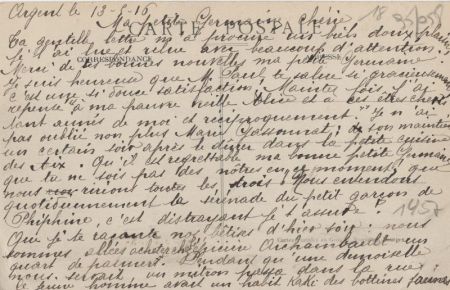 Argent le 13-5-16
Ma petite Germaine chérie
CARTE POSTALE
Ta gentille lettre m'a procuré un bien doux plaisir
je l'ai lue et relue avec beaucoup d'attention.
CORRESPONDANCE
Merci de ces bonnes nouvelles ma petite Germaine
Je suis heureuse que M. Paul te salue si gracieusement
c'est une si douce satisfaction. Maintes fois j'ai
repensé à ma pauvre vieille et à ces êtres chers
tant aimés de moi et réciproquement. Je n'ai
pas oublié non plus Marie son maintien
un certain soir après le dîner dans la petite cuisine
des Aix. Qu'il est regrettable ma bonne petite Germaine
que tu ne sois pas des nôtres en ce moment, que
nous ririons toutes les trois. Nous entendons
quotidiennement la sérénade du petit garçon de
Phiphine, c'est distrayant je t'assure.
Que je te raconte nos bêtises d'hier soir: nous
sommes allées acheter chez Archambault un
quart de palmers. Pendant qu'une demoiselle
nous servait, un piéton passa dans la rue;
le jeune homme avait un habit kaki des bottines jaunes